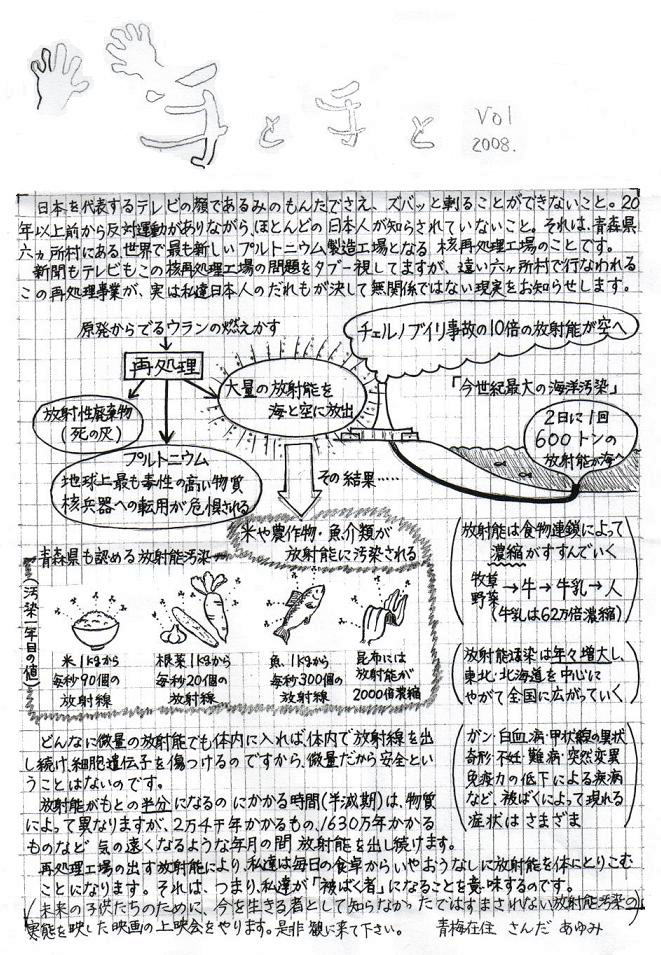 手と手と
Vol
2008.
日本を代表するテレビの顔であるみのもんたでさえ、ズバッと斬ることができないこと。20
年以上前から反対運動がありながら、ほとんどの日本人が知らされていないこと。それは、青森県
六ヶ所村にある、世界で最も新しいプルトニウム製造工場となる 核再処理工場のことです。
新聞もテレビもこの核再処理工場の問題をタブー視してますが、遠い六ヶ所村で行なわれる
この再処理事業が、実は私達日本人のだれもが決して無関係ではない現実をお知らせします。
原発からでるウランの燃えかす
再処理
放射性廃棄物
(死の灰)
プルトニウム
地球上最も毒性の高い物質
核兵器への転用が危惧される
大量の放射能を
海と空に放出
チェルノブイリ事故の10倍の放射能が空へ
「今世紀最大の海洋汚染」
2日に1回
600トンの
放射能が海へ
その結果……
米や農作物・魚介類が
放射能に汚染される
青森県も認める放射能汚染
(汚染一年目の値)
米1kgから
毎秒90個の
放射線
根菜1kgから
毎秒20個の
放射線
魚1kgから
毎秒300個の
放射線
昆布には
放射能が
2000倍濃縮
放射能は食物連鎖によって
濃縮がすすんでいく
牧草
野菜→牛→牛乳→人
(牛乳は62万倍濃縮)
放射能汚染は年々増大し、
東北・北海道を中心に
やがて全国に広がっていく
ガン・白血病・甲状線の異状
奇形・不妊・難病・突然変異
免疫力の低下による疾病
など、被ばくによって現れる
症状はさまざま
どんなに微量の放射能でも体内に入れば、体内で放射線を出
し続け、細胞遺伝子を傷つけるのですから、微量だから安全とい
うことはないのです。
放射能がもとの半分になるのにかかる時間(半減期)は、物質
によって異なりますが、2万4千年かかるもの、1630万年かかる
ものなど 気の遠くなるような年月の間 放射能を出し続けます。
再処理工場の出す放射能により、私達は毎日の食卓からいやおうなしに放射能を体にとりこむ
ことになります。それは、つまり、私達が「被ばく者」になることを意味するのです。
未来の子供たちのために、今を生きる者として知らなかったではすまされない放射能汚染の
実態を映した映画の上映会をやります。是非 観に来て下さい。 青梅在住 さんだ あゆみ